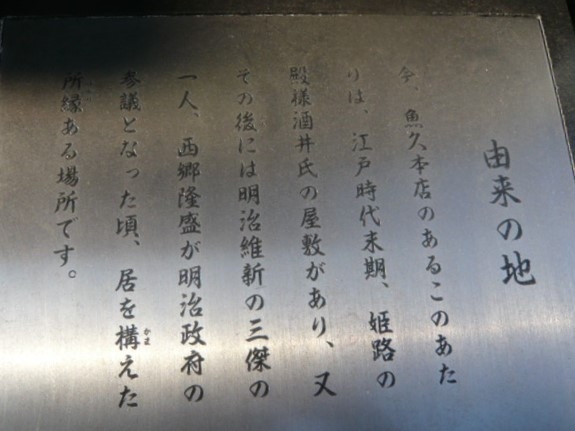 由来の地
今、魚久本店のあるこのあた
りは、江戸時代末期、姫路の
殿様酒井氏の屋敷があり、又
その後には明治維新の三傑の
一人、西郷隆盛が明治政府の
参議となった頃、居を構えた
かま
所縁ある場所です。